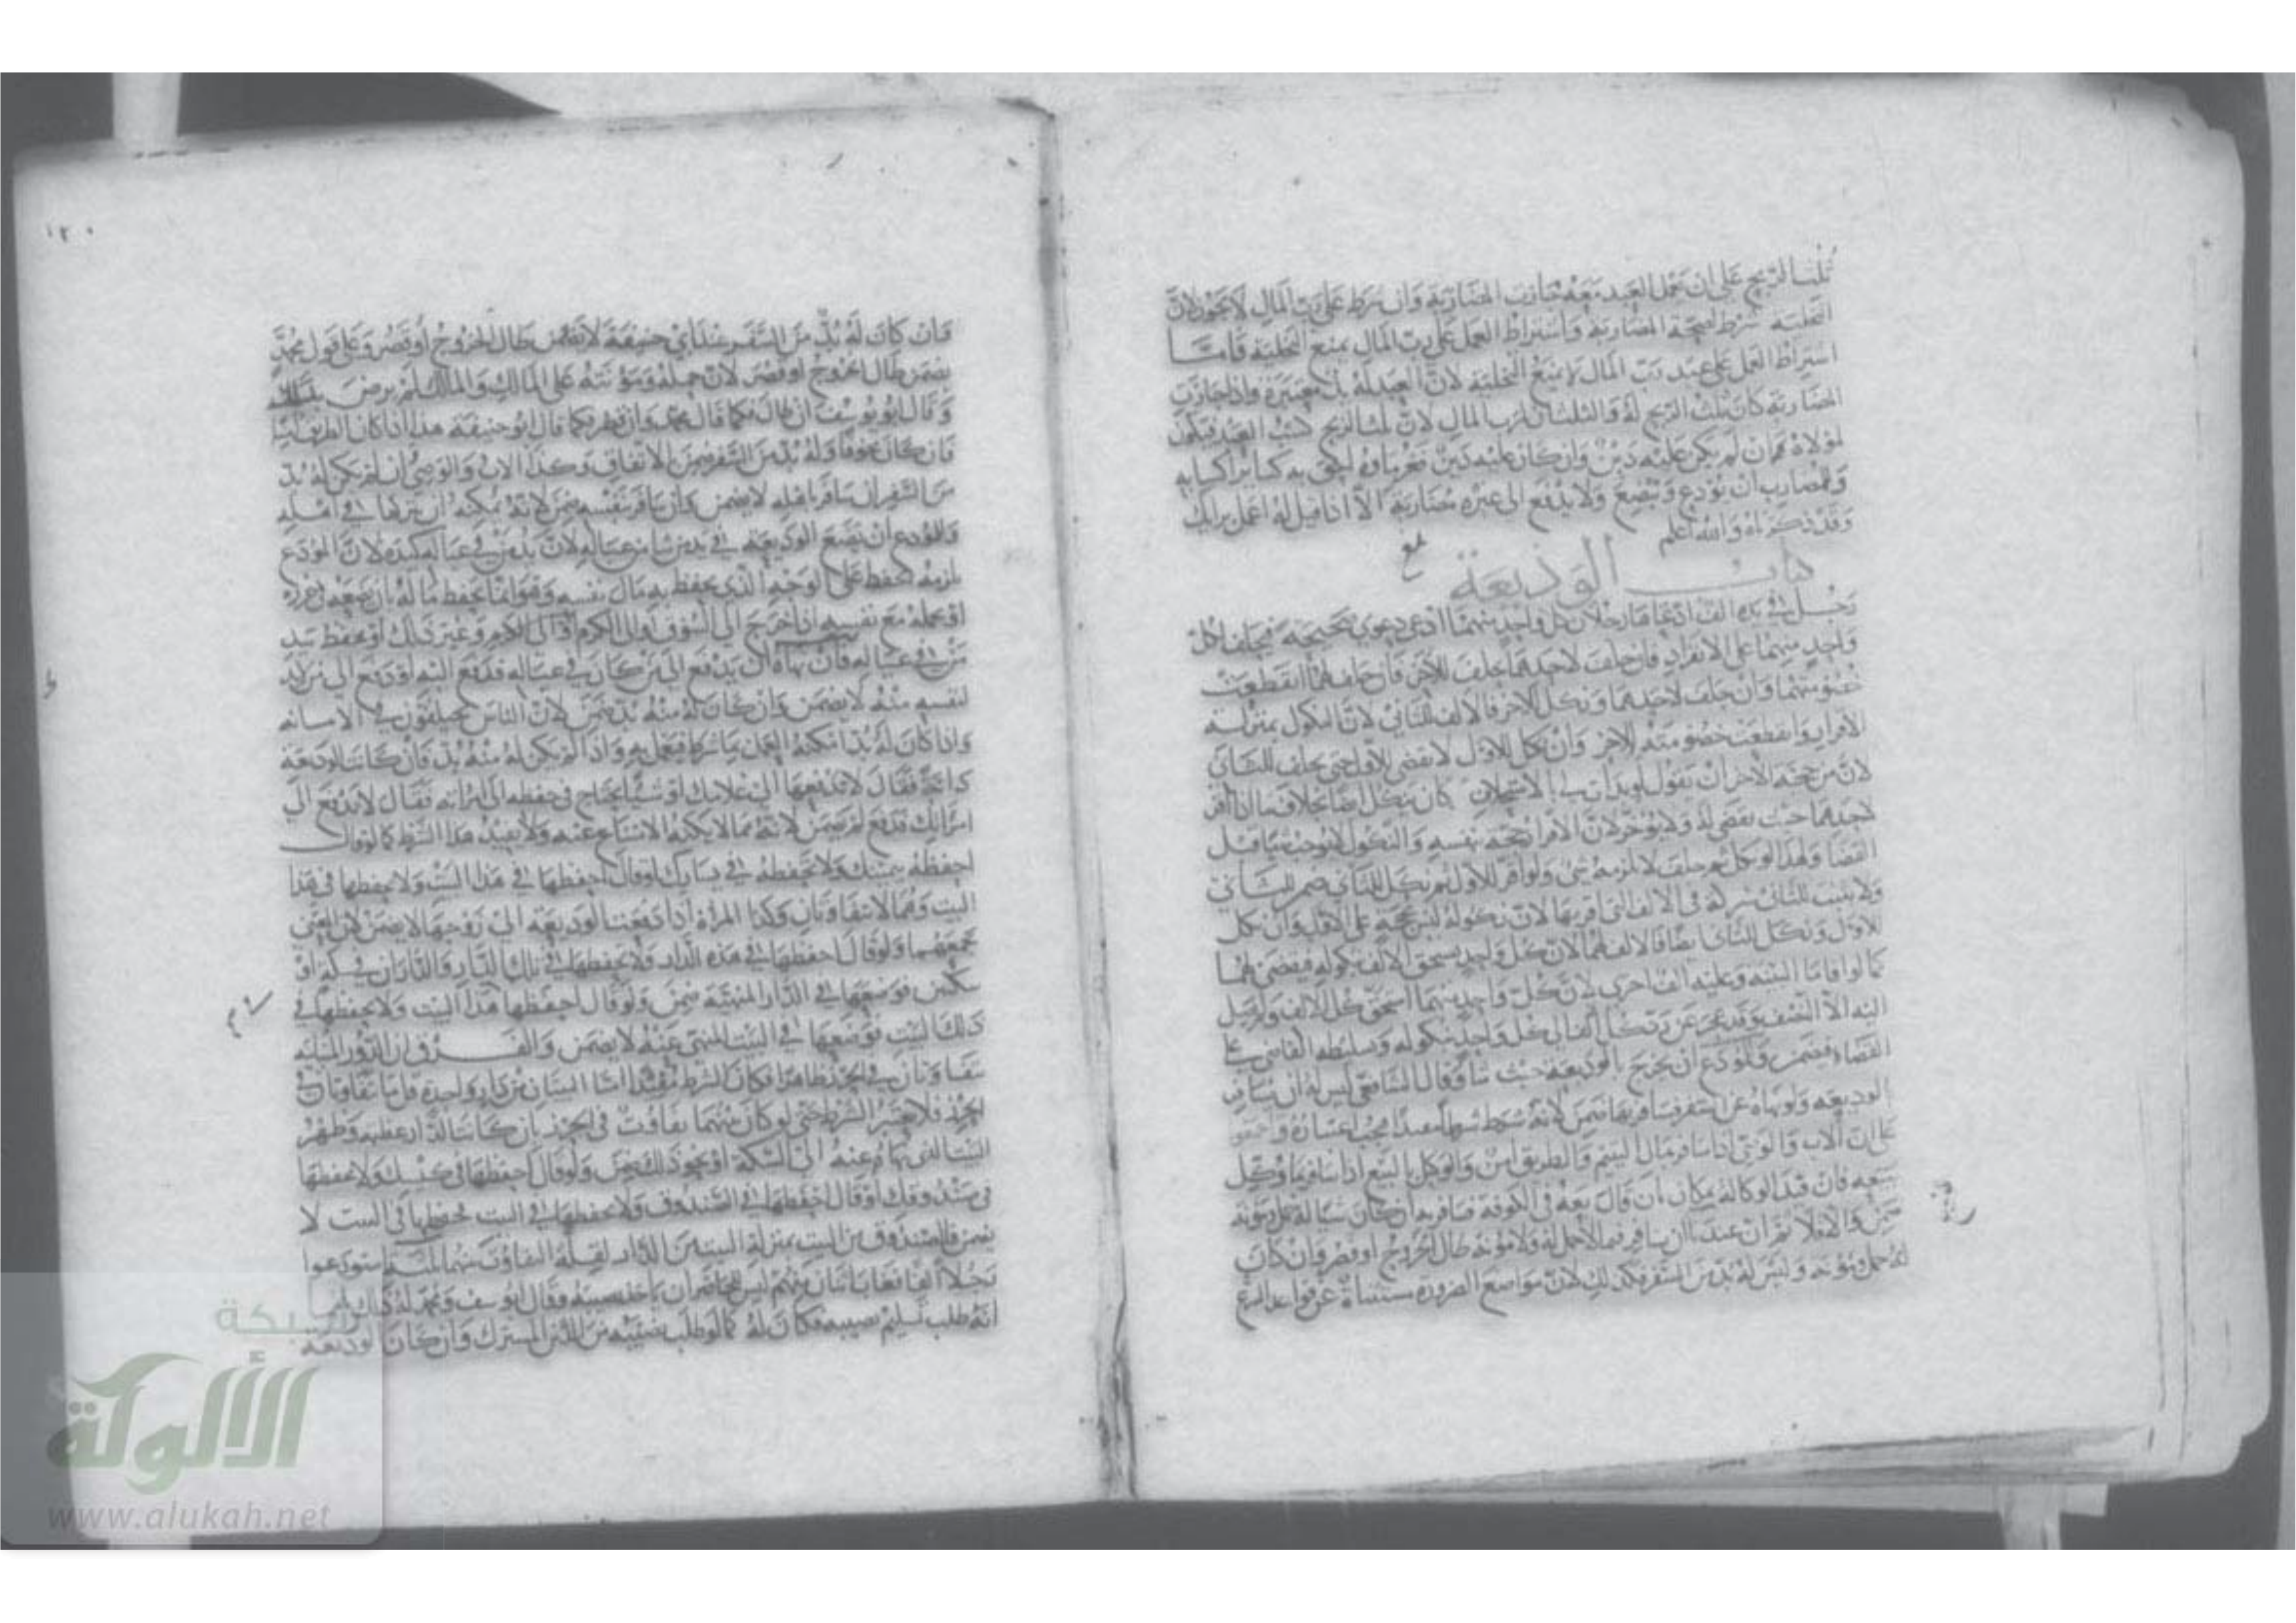 ثلث الربح على ان عمل العبد معه جازت المضاربة وان شرط على رب المال لا يجوز لان
التخلية شرط لصحة المضاربة واشتراط العمل على رب المال يمنع التخلية فاما
اشتراط العمل على عبد رب المال لا يمنع التخلية لان العبد له يد معتبرة واذا جازت
المضاربة كان ثلث الربح له والثلثان لرب المال لان ثلث الربح كسب العبد فيكون
لمولاه فان لم يكن عليه دين وان كان عليه دين غرماؤه احق به كسائر اكسابه
وللمضارب ان يودع ويبضع ولا يدفع الى غيره مضاربة الا اذا قيل له اعمل برايك
وقد ذكرناه والله اعلم
كتاب الوديعة
رجل في يده الف ادعاها رجلان كل واحد منهما ادعى دعوى صحيحة يحلف لكل
واحد منهما على الانفراد فان حلف لاحدهما يحلف للاخر فان حلف لهما انقطعت
خصومتهما وان حلف لاحدهما ونكل للاخر فالالف للثاني لان النكول بمنزلة
الاقرار وانقطعت خصومته للاخر وان نكل للاول لا يقضى للاول حتى يحلف للثاني
لان من حجة الاخر ان يقول لو بدأت بي الاستحلاف كان ينكل ايضا بخلاف ما اذا اقر
لاحدهما حيث يقضى له ولا يؤخر لان الاقرار حجة بنفسه والنكول لا يوجب شيا قبل
القضا ولهذا لو نكل ثم حلف لا يلزمه شي ولو اقر للاول ثم نكل للثاني ضمن للثاني
ولا يثبت للثاني شركة في الالف التي اقر بها لان نكوله ليس بحجة على الاول وان نكل
للاول ونكل للثاني ايضا فالالف لهما لان كل واحد يستحق الالف بنكوله فيقضى لهما
كما لو اقاما البينة وعليه الف اخرى لان كل واحد منهما استحق كل الالف ولم يصل
اليه الا النصف وقد عجز عن رد كل الف الى كل واحد بنكوله وتسليطه القاضي على
القضاء فيضمن وللمودع ان يخرج بالوديعة حيث شا وقال الشافعي ليس له ان يسافر
الوديعة ولو نهاه عن السفر فسافر بها ضمن لانه شرط شرطا مفيدا يجب اعتباره واجمعوا
على ان الاب والوصي اذا سافر بمال اليتيم والطريق امن والوكيل بالبيع اذا سافر بما وكل
ببيعه فان قيد الوكالة بمكان بان قال بعه في الكوفة فسافر به ان كان شيا له حمل ومؤنة
ضمن والا فلا ثم ان عنده ان يسافر فيما لا حمل له ولا مؤنة طال الخروج او قصر وان كان
له حمل ومؤنة وليس له بد من السفر فكذلك لان مواضع الضرورة مستثناة عن قواعد الشرع
١٢٠
فان كان له بد من السفر عند ابي حنيفة لا يضمن طال الخروج او قصر وعلى قول محمد
يضمن طال الخروج او قصر لان حمله ومؤنته على المالك والمالك لم يرض بذلك
وقال ابو يوسف ان طال فكما قال محمد وان قصر فكما قال ابو حنيفة هذا اذا كان الطريق امنا
فان كان مخوفا وله بد من السفر ضمن بالاتفاق وكذا الاب والوصي ان لم يكن له بد
من السفر ان سافر باهله لا يضمن وان سافر بنفسه ضمن لانه يمكنه ان يتركها في اهله
وللمودع ان يضع الوديعة في يد من شا من عياله لان يد من في عياله كيده لان المودع
يلزمه الحفظ على الوجه الذي يحفظ به مال نفسه وهو انما يحفظ ماله بان يضعه في حرزه
او يحمله مع نفسه ان اخرج الى السوق او الى الكرم وغير ذلك او يحفظ بيد
من في عياله فان نهاه ان يدفع الى من كان في عياله فدفع اليه او دفع الى من لا بد
لنفسه منه لا يضمن وان كان له منه بد ضمن لان الناس يختلفون في الامانة
واذا كان له بد امكنه العمل بما شرط فيعمل به واذا لم يكن له منه بد فان كانت الوديعة
دابة فقال لا تدفعها الى غلامك او شيا يحتاج في حفظه الى امراته فقال لا تدفع الى
امراتك فدفع لم يضمن لانه مما لا يمكنه الامتناع عنه ولا يفيد هذا الشرط كما لو قال
احفظه بيمينك ولا تحفظه في يسارك او قال احفظها في هذا البيت ولا تحفظها في هذا
البيت وهما لا يتفاوتان وكذا المراة اذا دفعت الوديعة الى زوجها لا يضمن لان المعنى
يجمعهما ولو قال احفظها في هذه الدار ولا تحفظها في تلك الدار والداران في سكة او
سكتين فوضعها في الدار المنهية ضمن ولو قال احفظها هذا البيت ولا تحفظها في
ذلك البيت فوضعها في البيت المنهي عنه لا يضمن والفرق ان الدور المختلفة
يتفاوتان في الحرز ظاهرا فكان الشرط مفيدا اما البيتان من دار واحدة قل ما يتفاوتان في
الحرز فلا يعتبر الشرط حتى لو كان بينهما تفاوت في الحرز بان كانت الدار عظيمة وظهر
البيت الذي نهاه عنه الى السكة او نحو ذلك يضمن ولو قال احفظها في كيسك ولا تحفظها
في صندوقك او قال احفظها في الصندوق ولا تحفظها في البيت فحفظها في البيت لا
يضمن فالصندوق من البيت بمنزلة البيتين من الدار لقلة التفاوت بينهما ثلاثة استودعوا
رجلا الفا فغاب اثنان منهم ليس للحاضر ان ياخذ نصيبه وقال ابو يوسف ومحمد له ذلك
انه طلب تسليم نصيبه فكان له كما لو طلب نصيبه من الدين المشترك وان كان الوديعة
شبكة
الألوكة
www.alukah.net